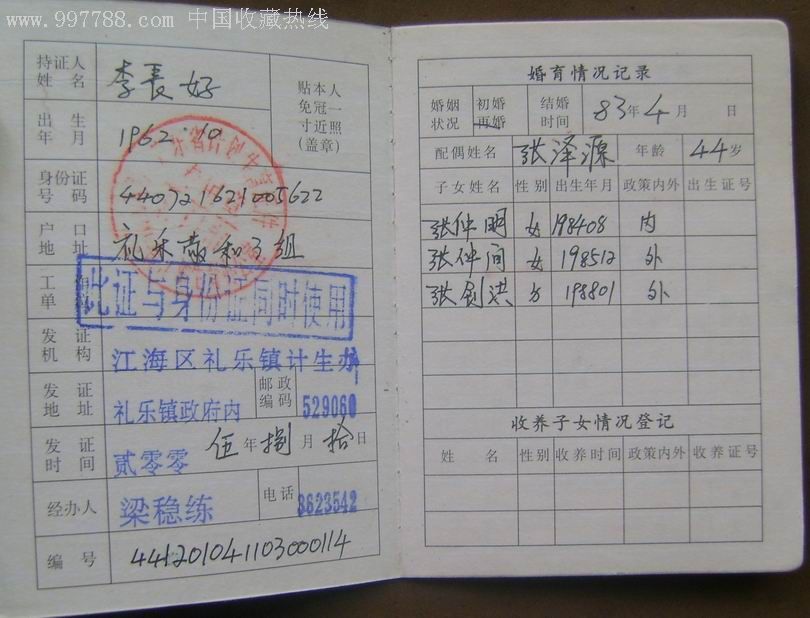 www.997788.com 中国收藏热线
持证人姓名 李長好
贴本人免冠一寸近照(盖章)
出生年月 1962.10
身份证号码 440721621005622
户口地址 礼乐 和 组
工 单
此证与身份证同时使用
发证机构 江海区礼乐镇计生办
发证地址 礼乐镇政府内 邮政编码 529060
发证时间 贰零零伍年捌月拾日
经办人 梁稳练 电话 3623542
编号 441201041103000114
婚育情况记录
婚姻状况 初婚 再婚 结婚时间 83年4月 日
配偶姓名 张泽源 年龄 44岁
子女姓名 性别 出生年月 政策内外 出生证号
张仲明 女 198408 内
张仲间 女 198512 外
张剑洪 198801 外
收养子女情况登记
姓名 性别 收养时间 政策内外 收养证号